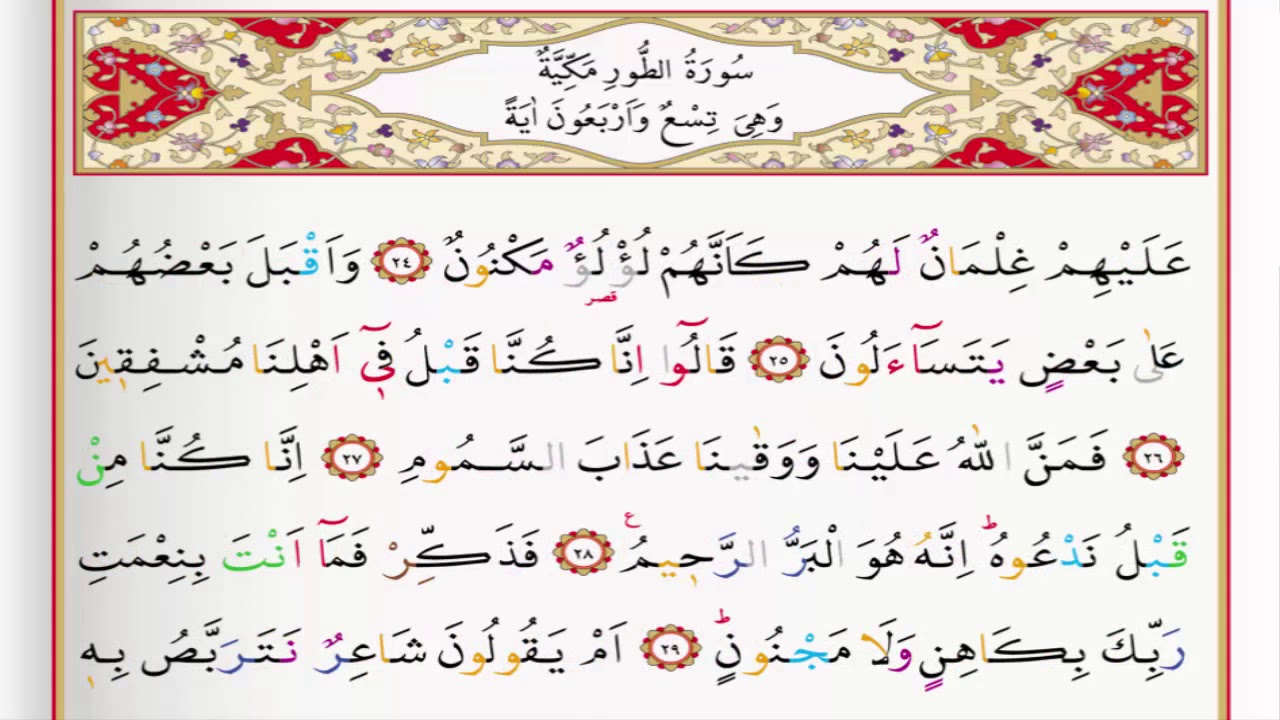 سُورَةُ الطُّورِ مَكِّيَّةٌ
وَهِىَ تِسْعٌ وَاَرْبَعُونَ اٰيَةً
عَلَيْهِمْ غِلْمَانٌ لَهُمْ كَاَنَّهُمْ لُؤْلُؤٌ مَكْنُونٌ ﴿٢٤﴾ وَاَقْبَلَ بَعْضُهُمْ
قصر
عَلٰى بَعْضٍ يَتَسَٓاءَلُونَ ﴿٢٥﴾ قَالُٓوا اِنَّا كُنَّا قَبْلُ فٖٓى اَهْلِنَا مُشْفِقٖينَ
﴿٢٦﴾ فَمَنَّ اللّٰهُ عَلَيْنَا وَوَقٰينَا عَذَابَ السَّمُومِ ﴿٢٧﴾ اِنَّا كُنَّا مِنْ
قَبْلُ نَدْعُوهُؕ اِنَّهُ هُوَ الْبَرُّ الرَّحٖيمُ ع ﴿٢٨﴾ فَذَكِّرْ فَمَٓا اَنْتَ بِنِعْمَتِ
رَبِّكَ بِكَاهِنٍ وَلَا مَجْنُونٍؕ ﴿٢٩﴾ اَمْ يَقُولُونَ شَاعِرٌ نَتَرَبَّصُ بِهٖ